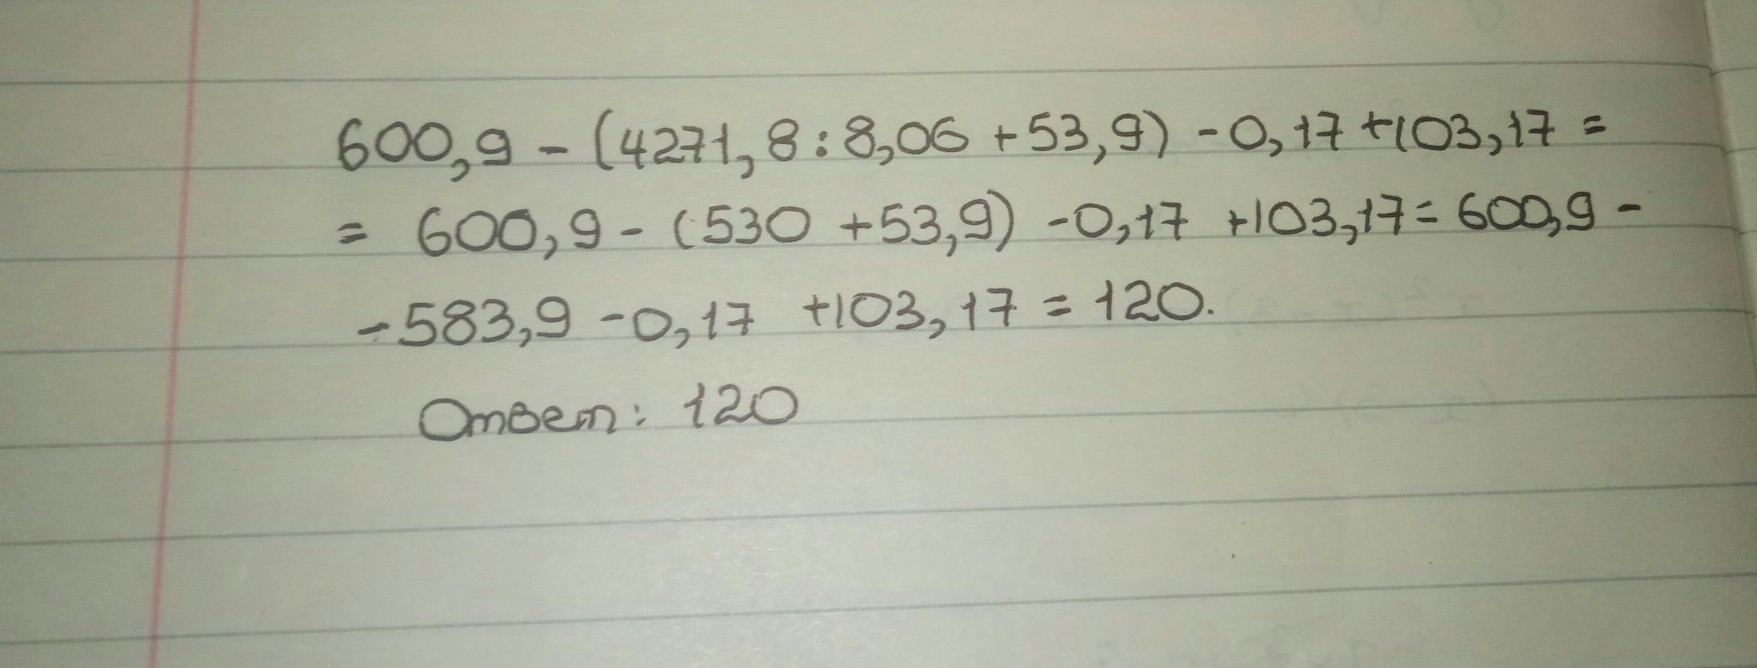 600,9 - (4271,8 : 8,06 + 53,9) - 0,17 + 103,17 =
= 600,9 - (530 + 53,9) - 0,17 + 103,17 = 600,9 -
- 583,9 - 0,17 + 103,17 = 120.
Ответ: 120